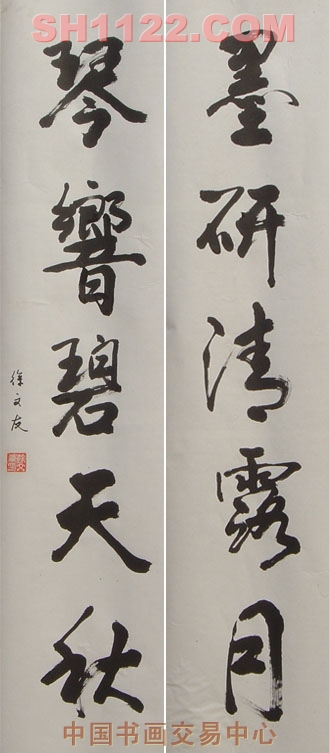 SH1122.COM
墨研清露月
琴響碧天秋
徐文友
中国书画交易中心